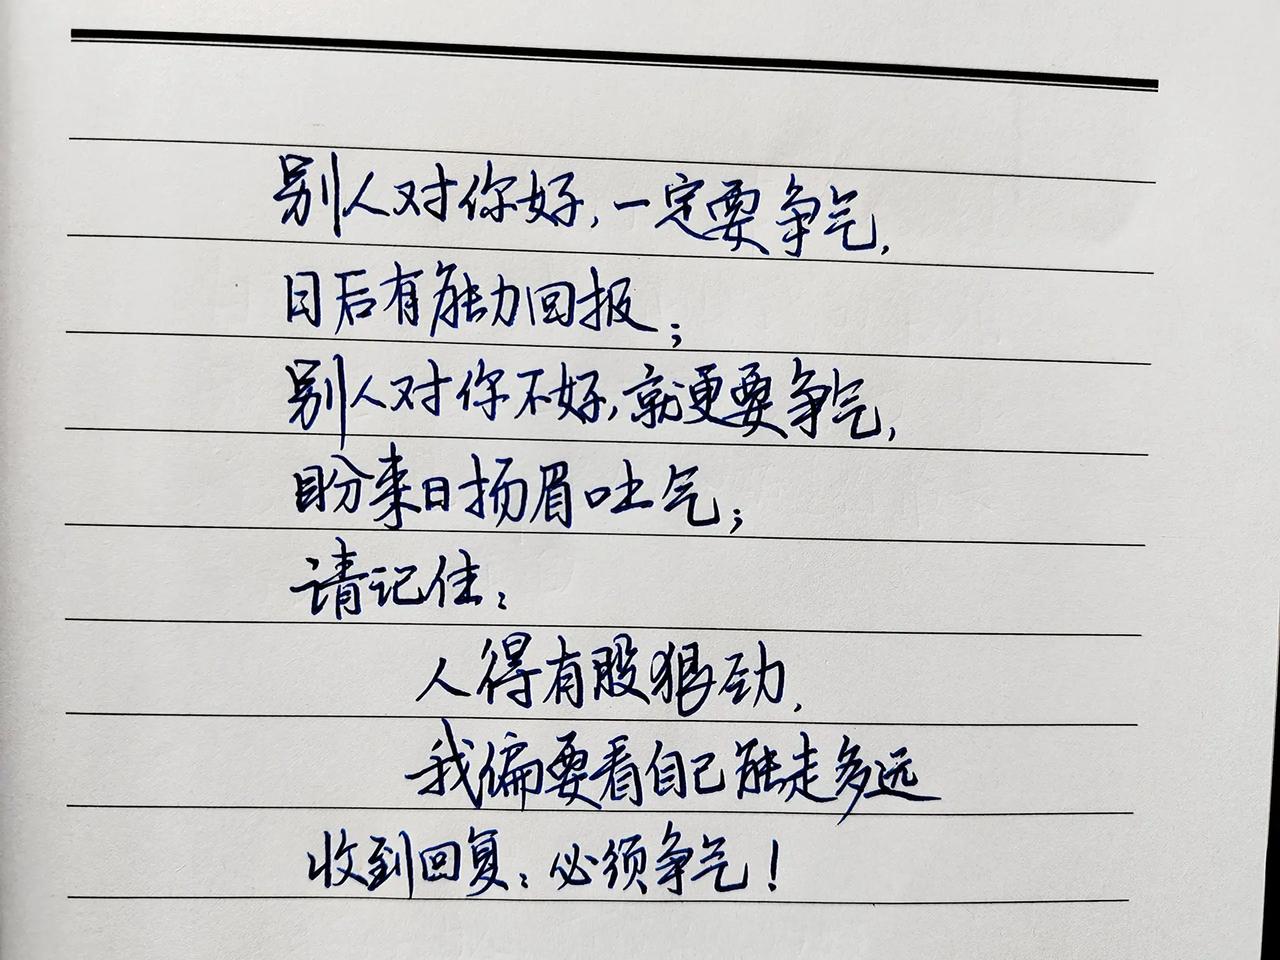 别人对你好,一定要争气,
日后有能力回报;
别人对你不好,就更要争气,
盼来日扬眉吐气;
请记住:
人得有股狠劲,
我偏要看自己能走多远
收到回复:必须争气!